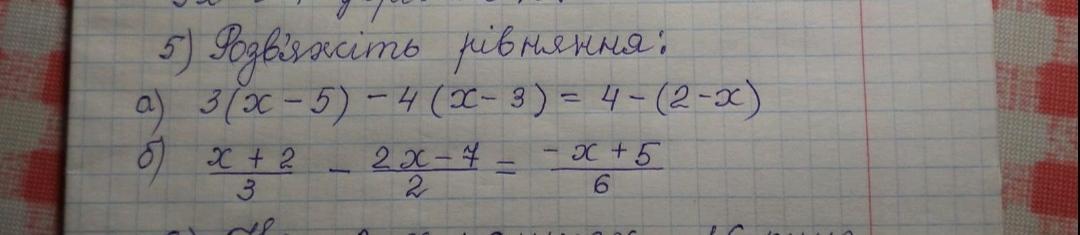 5) Розв'яжіть рівняння:
а) 3(x - 5) - 4(x - 3) = 4 - (2 - x)
б) (x + 2)/3 - (2x - 7)/2 = (-x + 5)/6